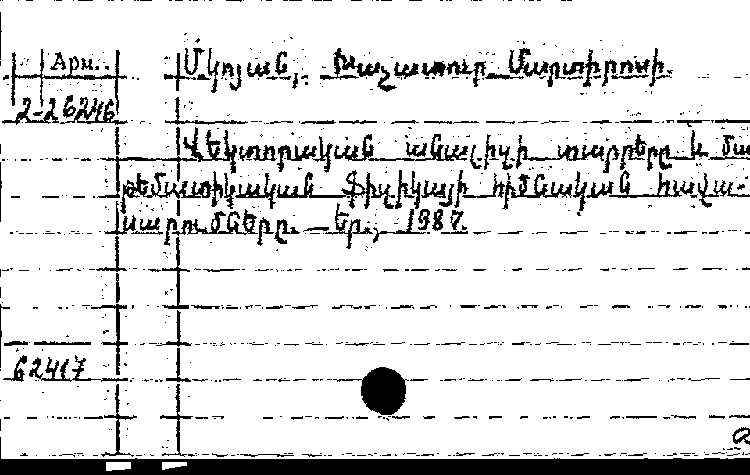 Арм. Մկոյան, Խաչատուր Մարտիրոսի.
2-26246
Վեկտորական անալիզի տարրերը և մա
թեմատիկական ֆիզիկայի հիմնական հավա-
սարումները. — Եր., 1987.
62417